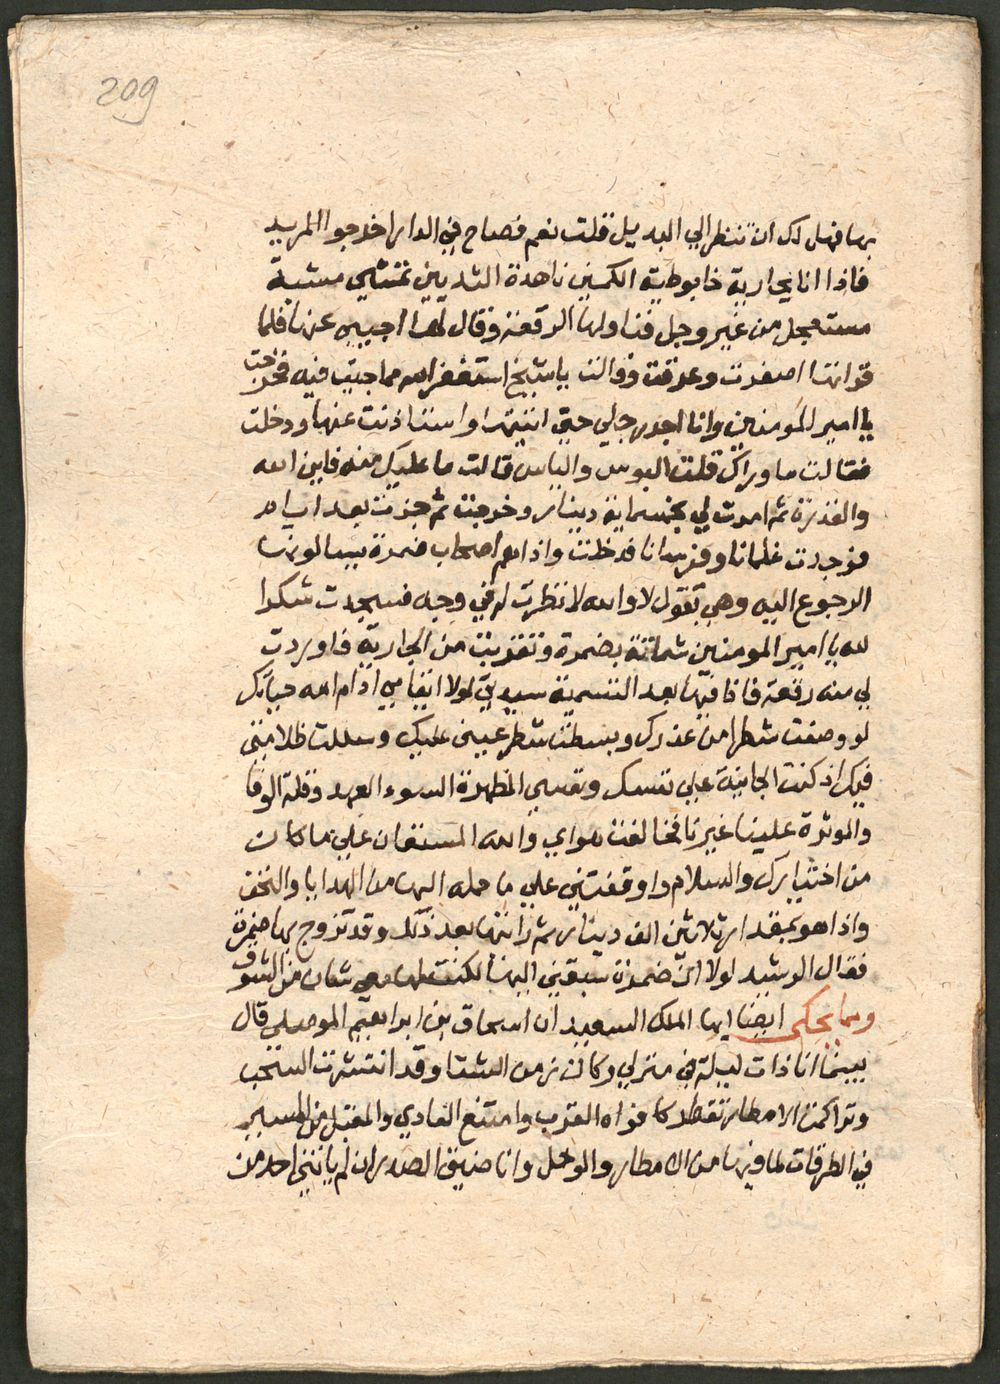 209
بها فهل لك ان تنظر الي البديل قلت نعم فصاح في الدار اخرجوا المريد
فاذا انا بجارية خابوطية الكمين ناهدة الثديين تمشي مشية
مستعجل من غير وجل فناولها الرقعة وقال لها اجيبي عنها فلما
قراتها اصفرت وعرقت وقالت يا شيخ استغفر الله مما جيت فيه فخرجت
يا امير المومنين وانا اجر رجلي حتي اتيتها واستاذنت عنها ودخلت
فقالت ما وراك قلت البوس والياس قالت ما عليك منه فاين الله
والقدرة ثم امرت لي بخمسماية دينار وخرجت ثم جزت بعد ايام
فوجدت غلمانا وفرسانا فدخلت واذا هم اصحاب ضمرة يسالونها
الرجوع اليه وهي تقول لا والله لا نظرت له في وجه فسجدت شكرا
لله يا امير المومنين شماتة بضمرة وتقربت من الجارية فاوردت
لي منه رقعة فاذا فيها بعد التسمية سيدتي لولا ابقاي ادام الله حياتك
لو وصفت شطرا من غدرك وبسطت شطر عيني عليك وسللت ظلامتي
فيك اذ كنت الجانية علي نفسك ونفسي المظهرة السوء العهد وقلة الوفا
والموثرة علينا غيرنا فخالفت هواي والله المستعان علي ما كان
من اختيارك والسلام واوقفتني علي ما حمله اليها من الهدايا والتحف
واذا هو بمقدار ثلاثين الف دينار ثم رايتها بعد ذلك وقد تزوج بها ضمرة
فقال الرشيد لولا ان ضمرة سبقني اليها لكنت لها معي شان من الشوف
ومما يحكي ايضا ايها الملك السعيد ان اسحاق بن ابراهيم الموصلي قال
بينما انا ذات ليلة في منزلي وكان زمن الشتا وقد انتشرت السحب
وتراكمت الامطار تقطر كافواه القرب وامتنع الغادي والمقبل من المسير
في الطرقات لما فيها من الامطار والوحل وانا ضيق الصدر ان لم ياتني احد من